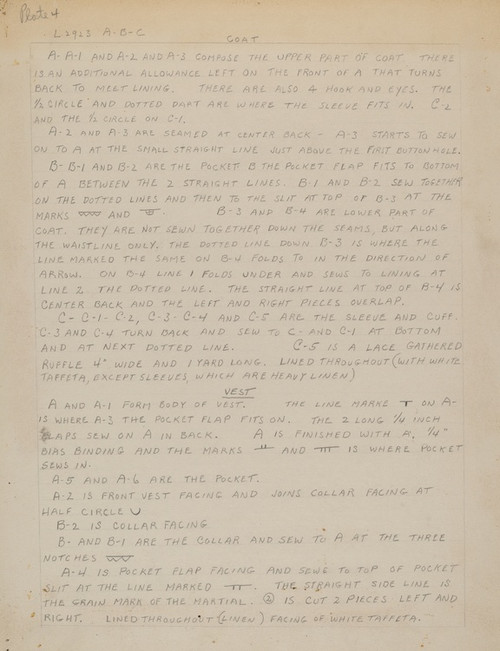 Plate 4
L2923 A-B-C
COAT
A- A-1 AND A-2 AND A-3 COMPOSE THE UPPER PART OF COAT THERE
IS AN ADDITIONAL ALLOWANCE LEFT ON THE FRONT OF A THAT TURNS
BACK TO MELT LINING. THERE ARE ALSO 4 HOOK AND EYES. THE
1/2 CIRCLE AND DOTTED DART ARE WHERE THE SLEEVE FITS IN. C-2
AND THE 1/2 CIRCLE ON C-1.
A-2 AND A-3 ARE SEAMED AT CENTER BACK - A-3 STARTS TO SEW
ON TO A AT THE SMALL STRAIGHT LINE JUST ABOVE THE FIRST BUTTONHOLE.
B- B-1 AND B-2 ARE THE POCKET B THE POCKET FLAP FITS TO BOTTOM
OF A BETWEEN THE 2 STRAIGHT LINES. B-1 AND B-2 SEW TOGETHER
ON THE DOTTED LINES AND THEN TO THE SLIT AT TOP OF B-3 AT THE
MARKS AND . B-3 AND B-4 ARE LOWER PART OF
COAT. THEY ARE NOT SEWN TOGETHER DOWN THE SEAMS, BUT ALONG
THE WAISTLINE ONLY. THE DOTTED LINE DOWN B-3 IS WHERE THE
LINE MARKED THE SAME ON B-4 FOLDS TO IN THE DIRECTION OF
ARROW. ON B-4 LINE 1 FOLDS UNDER AND SEWS TO LINING AT
LINE 2 THE DOTTED LINE. THE STRAIGHT LINE AT TOP OF B-4 IS
CENTER BACK AND THE LEFT AND RIGHT PIECES OVERLAP.
C- C-1- C-2, C-3- C-4 AND C-5 ARE THE SLEEVE AND CUFF.
C-3 AND C-4 TURN BACK AND SEW TO C- AND C-1 AT BOTTOM
AND AT NEXT DOTTED LINE. C-5 IS A LACE GATHERED
RUFFLE 4" WIDE AND 1 YARD LONG. LINED THROUGHOUT (WITH WHITE
TAFFETA, EXCEPT SLEEVES, WHICH ARE HEAVY LINEN)
VEST
A AND A-1 FORM BODY OF VEST. THE LINE MARKE ON A-
IS WHERE A-3 THE POCKET FLAP FITS ON. THE 2 LONG 1/4 INCH
FLAPS SEW ON A IN BACK. A IS FINISHED WITH A, 1/4"
BIAS BINDING AND THE MARKS AND IS WHERE POCKET
SEWS IN.
A-5 AND A-6 ARE THE POCKET.
A-2 IS FRONT VEST FACING AND JOINS COLLAR FACING AT
HALF CIRCLE
B-2 IS COLLAR FACING
B- AND B-1 ARE THE COLLAR AND SEW TO A AT THE THREE
NOTCHES
A-4 IS POCKET FLAP FACING AND SEWS TO TOP OF POCKET
SLIT AT THE LINE MARKED . THE STRAIGHT SIDE LINE IS
THE GRAIN MARK OF THE MARTIAL. 2 IS CUT 2 PIECES LEFT AND
RIGHT. LINED THROUGHOUT (LINEN) FACING OF WHITE TAFFETA.